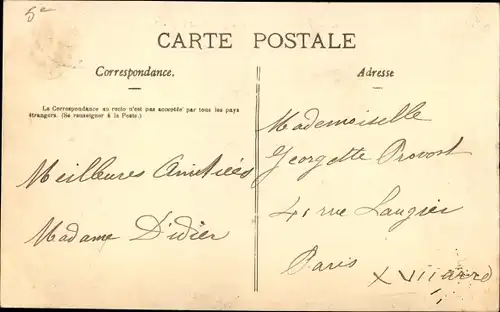 5e
CARTE POSTALE
Correspondance.
La Correspondance au recto n'est pas acceptée par tous les pays
étrangers. (Se renseigner à la Poste.)
Meilleures Amitiées
Madame Didier
Adresse
Mademoiselle
Georgette Provost
41 rue Laugier
Paris
XVII arrd